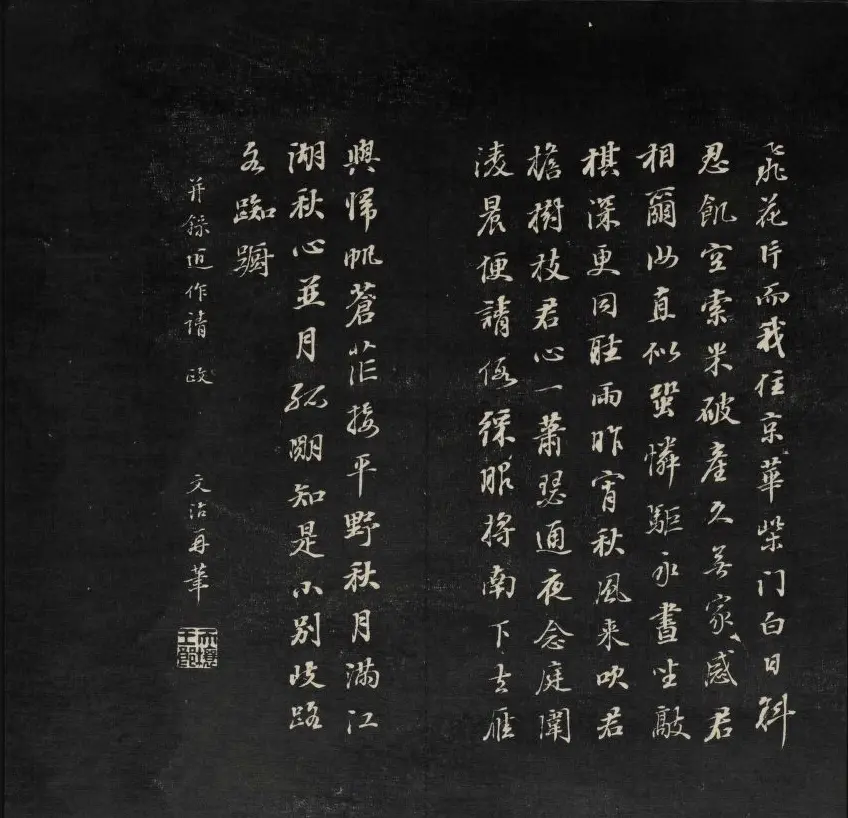 飛花片而我住京華柴门白日斜
忍飢空索米破產久無家感君
相爾汝直似蛩憐駏永晝坐敲
棋深更同聽雨昨宵秋風来吹君
檐樹枝君心一蕭瑟通夜念庭闈
淩晨便請假将南下去雁
與帰帆蒼茫接平野秋月满江
湖秋心並月孤明知是小别歧路
亦踟蹰
并錄近作請 政
文治再筆